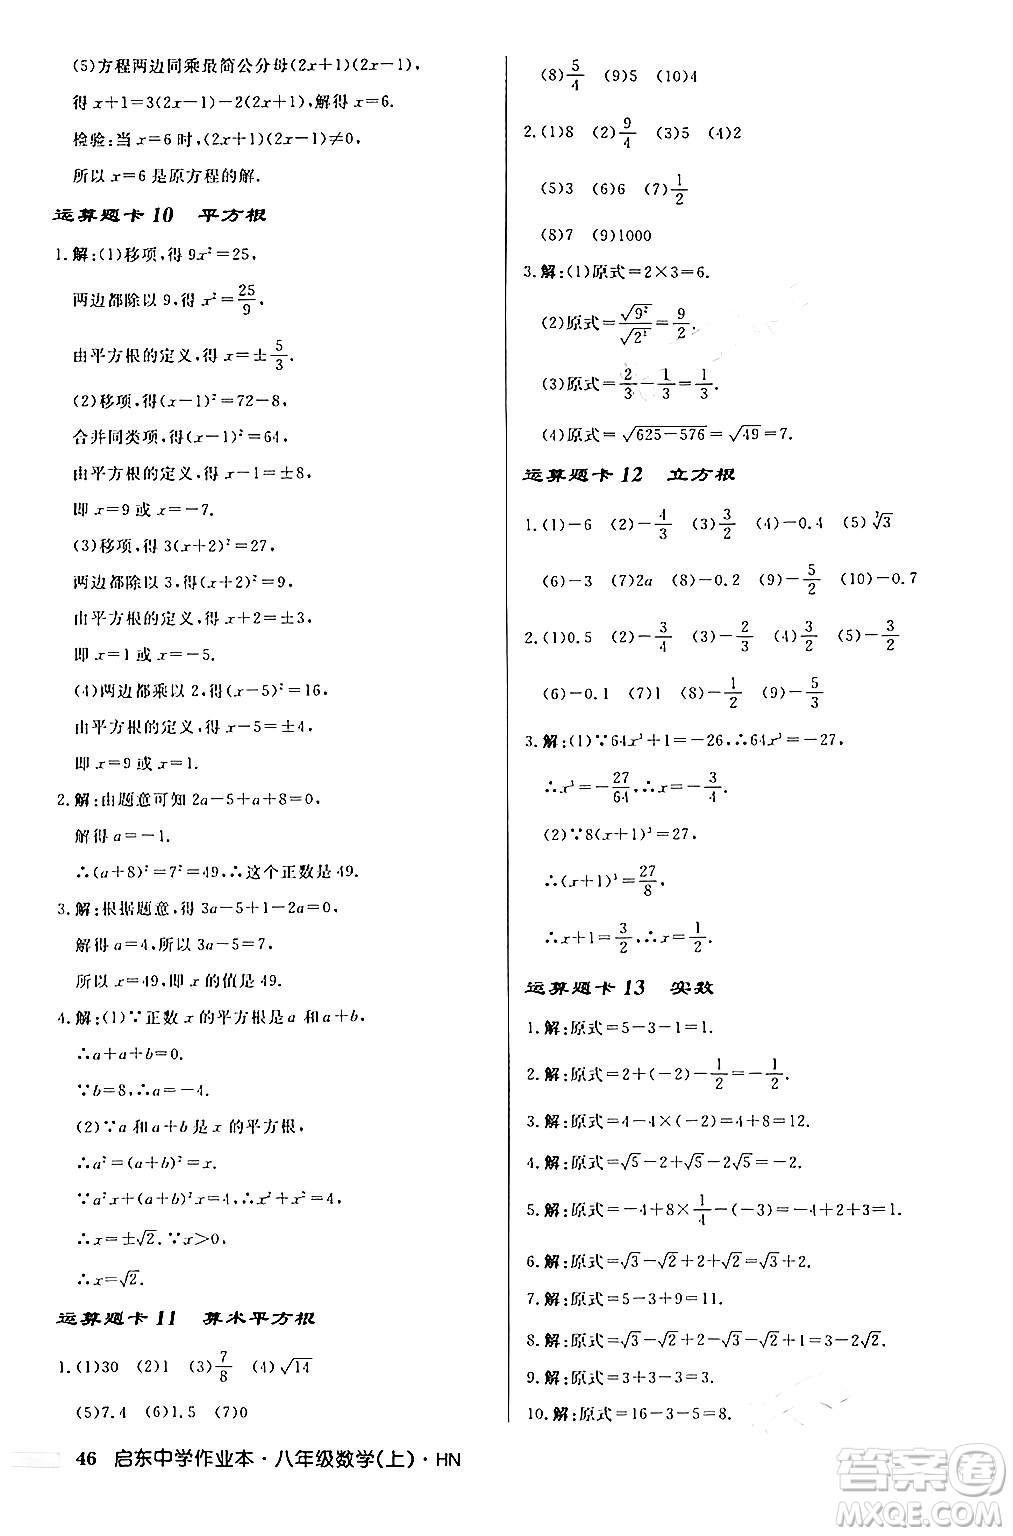 (5)方程两边同乘最简公分母(2x+1)(2x-1),
得 x+1=3(2x-1)-2(2x+1),解得 x=6.
检验:当 x=6 时,(2x+1)(2x-1)≠0,
所以 x=6 是原方程的解.
运算题卡 10 平方根
1.解:(1)移项,得 9x²=25,
两边都除以 9,得 x²=25/9,
由平方根的定义,得 x=±5/3.
(2)移项,得(x-1)²=72-8,
合并同类项,得(x-1)²=64,
由平方根的定义,得 x-1=±8,
即 x=9 或 x=-7.
(3)移项,得 3(x+2)²=27,
两边都除以 3,得(x+2)²=9,
由平方根的定义,得 x+2=±3,
即 x=1 或 x=-5.
(4)两边都乘以 2,得(x-5)²=16,
由平方根的定义,得 x-5=±4,
即 x=9 或 x=1.
2.解:由题意可知 2a-5+a+8=0,
解得 a=-1.
∴(a+8)²=7²=49,∴这个正数是 49.
3.解:根据题意,得 3a-5+1-2a=0,
解得 a=4,所以 3a-5=7,
所以 x=49,即 x 的值是 49.
4.解:(1)∵正数 x 的平方根是 a 和 a+b,
∴a+a+b=0.
∵b=8,∴a=-4.
(2)∵a 和 a+b 是 x 的平方根,
∴a²=(a+b)²=x.
∵a²x+(a+b)²x=4,∴x²+x²=4,
∴x=±√2.∵x>0,
∴x=√2.
运算题卡 11 算术平方根
1.(1)30 (2)1 (3)7/8 (4)√14
(5)7.4 (6)1.5 (7)0
(8)5/4 (9)5 (10)4
2.(1)8 (2)9/4 (3)5 (4)2
(5)3 (6)6 (7)1/2
(8)7 (9)1000
3.解:(1)原式=2×3=6.
(2)原式=√9²/√2²=9/2.
(3)原式=2/3-1/3=1/3.
(4)原式=√625-576=√49=7.
运算题卡 12 立方根
1.(1)-6 (2)-4/3 (3)3/2 (4)-0.4 (5)∛3
(6)-3 (7)2a (8)-0.2 (9)-5/2 (10)-0.7
2.(1)0.5 (2)-3/4 (3)-2/3 (4)3/2 (5)-3/2
(6)-0.1 (7)1 (8)-1/2 (9)-5/3
3.解:(1)∵64x³+1=-26,∴64x³=-27,
∴x³=-27/64,∴x=-3/4.
(2)∵8(x+1)³=27,
∴(x+1)³=27/8,
∴x+1=3/2,∴x=1/2.
运算题卡 13 实数
1.解:原式=5-3-1=1.
2.解:原式=2+(-2)-1/2=-1/2.
3.解:原式=4-4×(-2)=4+8=12.
4.解:原式=√5-2+√5-2√5=-2.
5.解:原式=-4+8×1/4-(-3)=-4+2+3=1.
6.解:原式=√3-√2+√2+2=√3+2.
7.解:原式=5-3+9=11.
8.解:原式=√3-√2-√3+1-√2+2=3-2√2.
9.解:原式=3+3-3=3.
10.解:原式=16-3-2=11.
46 启东中学作业本·八年级数学(上)·HN
答案圈
MXQE.COM